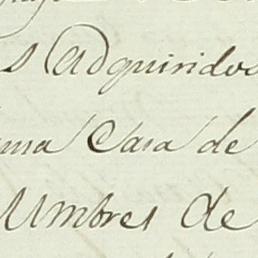 s Adquiridos
una Casa de
Umbres de